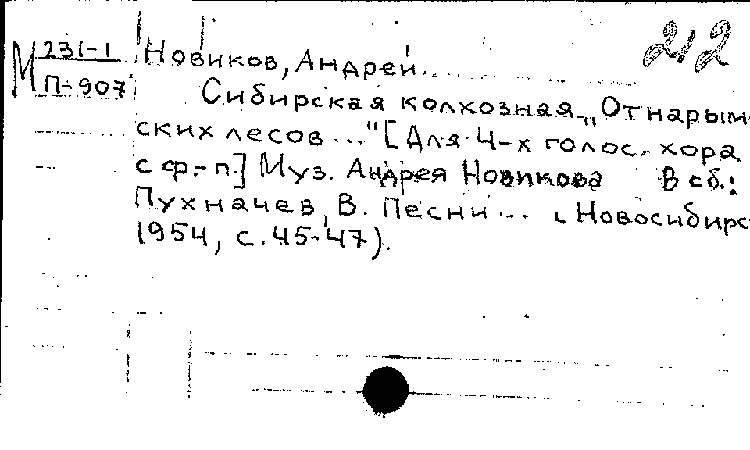 212
М 231-1
П-907
Новиков, Андрей.
Сибирская колхозная „От нарым-
ских лесов..." [Для 4-х голос. хора
с ф.-п.] Муз. Андрея Новикова В сб.:
Пухначев, В. Песни... (Новосибирск
1954, с. 45-47).